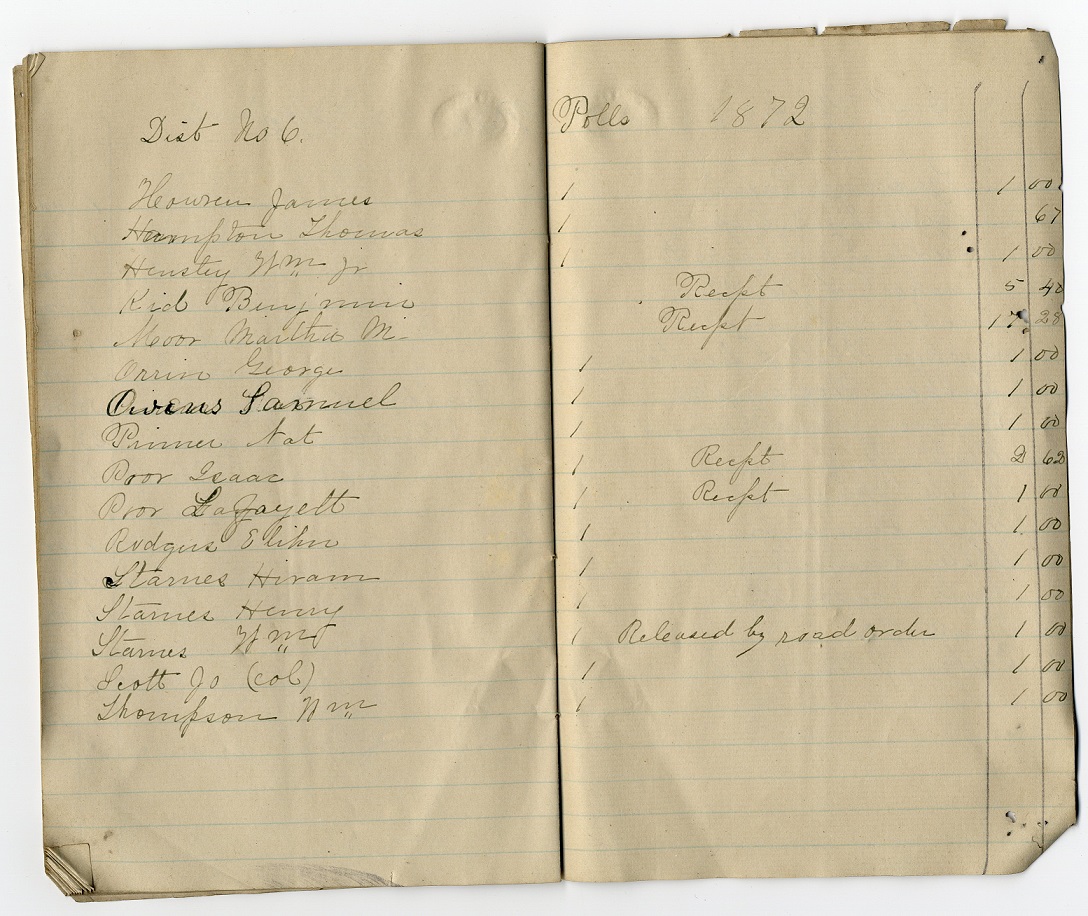 Dist No 6. Polls 1872
Howren James 1 1 00
Hampton Thomas 1 67
Hensley Wm Jr 1 1 00
Kid Benjmin Recpt 5 40
Moor Martha M. Recpt 17.28
Orrin George 1 1 00
Owens Samuel 1 1 00
Pinner Nat 1 1 00
Poor Isaac 1 Recpt 2 62
Poor Lafayett 1 Recpt 1 00
Rodgers Elihu 1 1 00
Starnes Hiram 1 1 00
Starnes Henry 1 1 00
Starnes Wm J 1 Released by road order 1 00
Scott Jo (col) 1 1 00
Thompson Wm 1 1 00